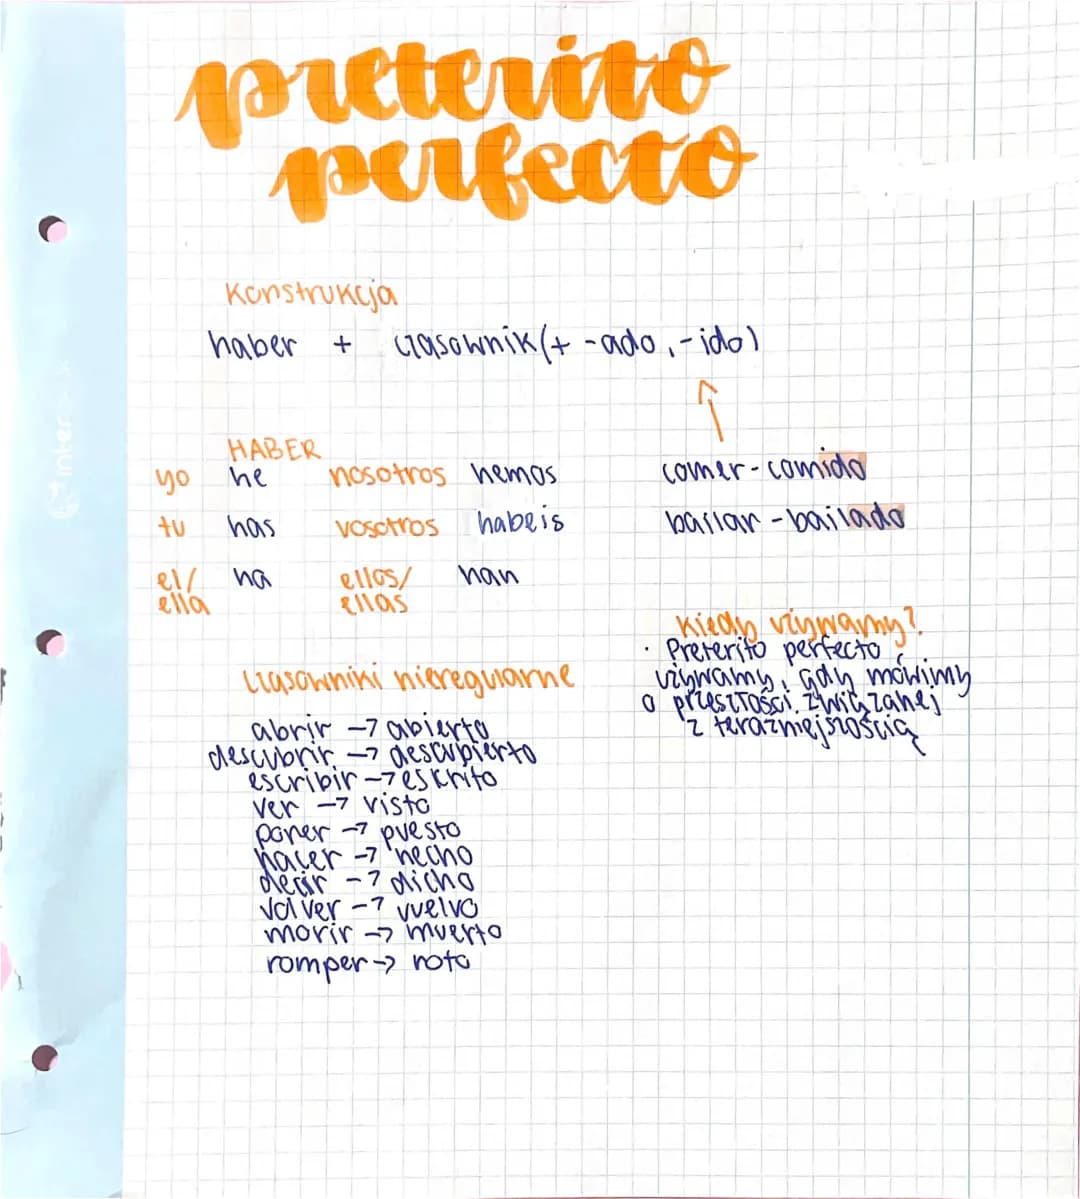 preterito
perfecto
Konstrukcja
haber + czasownik (+ -ado, -ido)
HABER
yo he nosotros hemos
tu has vosotros habeis
el/ ha ellos/ han
ella ellas
comer - comido
bailar - bailado
Kiedy używamy?
• Preterito perfecto
używamy, gdy mówimy
o przeszłości związanej
z teraźniejszością
czasowniki nieregularne
abrir → abierto
descubrir → descubierto
escribir → escrito
ver → visto
poner → puesto
hacer → hecho
decir → dicho
volver → vuelvo
morir → muerto
romper → roto